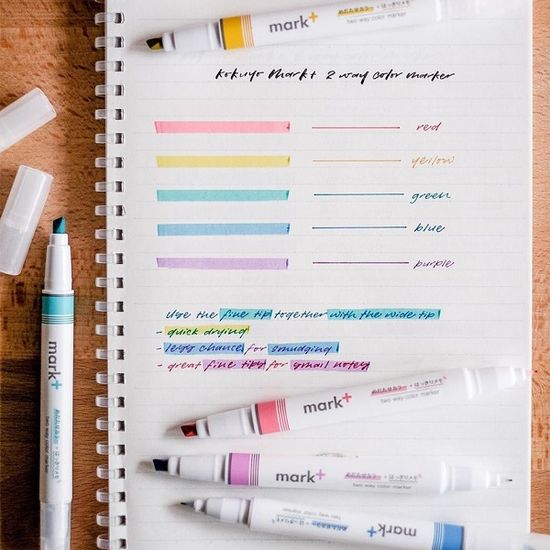 mark+
two way color marker
Kokuyo Mark+ 2 way color marker
red
yellow
green
blue
purple
Use the fine tip together with the wide tip
- quick drying
- less chance for smudging
- great fine tips for small notes
mark+
two way color marker
mark+
two way color marker
mark+
two way color marker
mark+
two way color marker